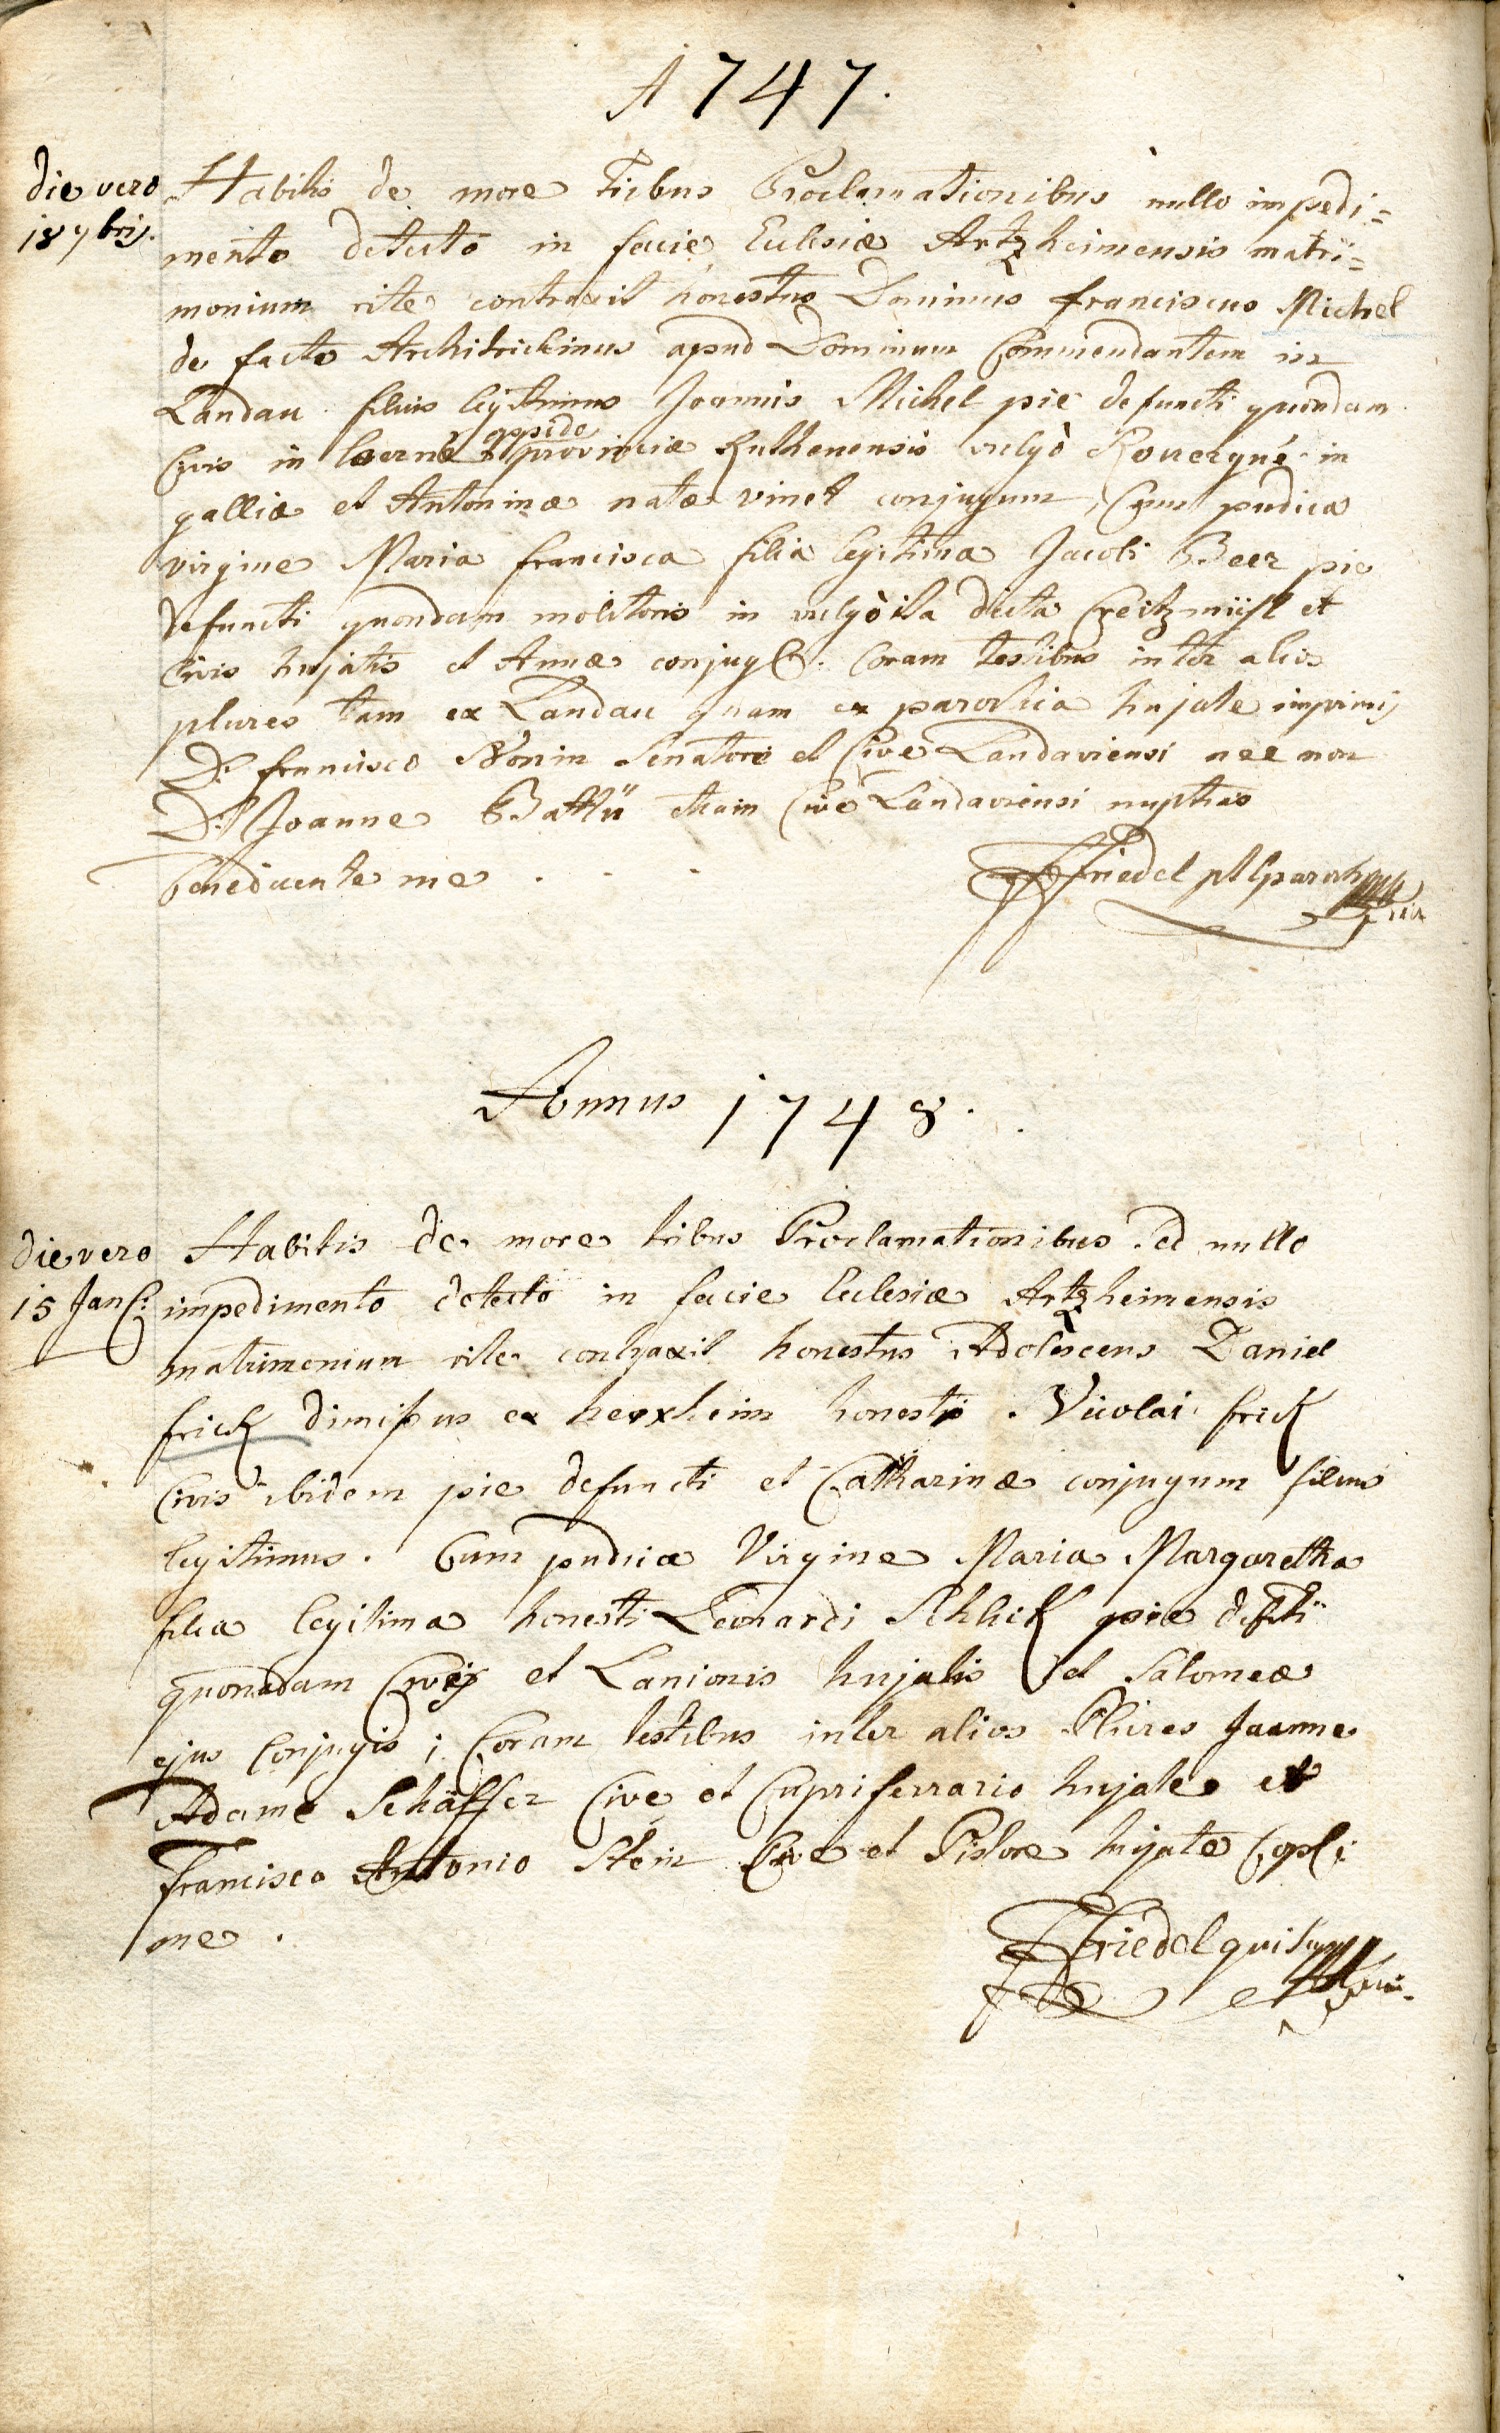 A 1747.
die vero
18 7bris.
Habitis de more tribus Proclamationibus nullo impedi=
mento detecto in facie Eclesiæ Artzheimensis matri=
monium rite contraxit honestus Dominus franciscus Michel
de facto Architriclinus apud Dominum Commendantem in
Landau filius legitimus Joannis Michel pie defuncti quondam
Civis in oppido provinciæ Ruthenensis vulgò Rouergué in
galliæ et Antoninæ natæ vinet conjugum, Cum pudica
virgine Maria francisca filia legitima Jacobi Beer pie
defuncti quondam molitoris in vulgò ita dicta et
Civis hujatis et Annæ conjug. Coram testibus inter alios
plures tam ex Landau quam ex parochia hujate imprimis
D. francisco Nonin Senatore et Cive Landaviensi nec non
D. Joanne Battü etiam Cive Landaviensi nuptias
benedicente me . . .
Friedel
Annus 1748.
die vero
15 Jan:
Habitis de more tribus Proclamationibus sed nullo
impedimento detecto in facie Eclesiæ Artzheimensis
matrimonium rite contraxit honestus Adolescens Daniel
frick dimissus ex herxheim honesti Nicolai frick
Civis ibidem pie defuncti et Catharinæ conjugum filius
legitimus. Cum pudica Virgine Maria Margaretha
filia legitima honesti Leonardi Schlick pie defcti
quondam Civis et Lanionis hujatis et Salomeæ
ejus Conjugis ; Coram testibus inter alios Plures Joanne
Adamo Schäffer Cive et Cupriferrario hujate et
Francisco Antonio Stein Cive et Pistore hujate
me .
Friedel qui